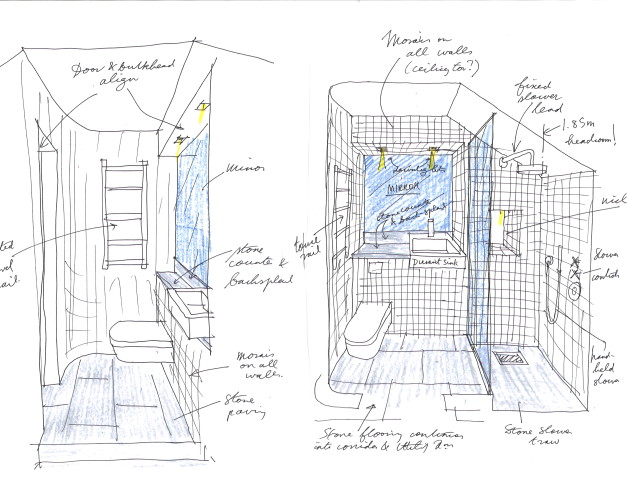 Door & bulkhead
align
mirror
stone
counter &
backsplash
Mosaic
on all
walls.
Stone
paving
Mosaic on
all walls
(ceiling too?)
fixed
shower
head
1.85m
headroom!
downlight
MIRROR
stone counter
& backsplash
towel
rail
Duravit Sink
Shower
controls
hand-
held
shower
Stone flooring continues
into corridor & Utility Rm
Stone shower
tray